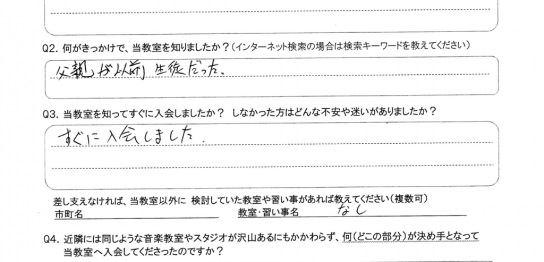 Q2. 何がきっかけで、当教室を知りましたか？（インターネット検索の場合は検索キーワードを教えてください）
父親が以前生徒だった.
Q3. 当教室を知ってすぐに入会しましたか？ しなかった方はどんな不安や迷いがありましたか？
すぐに入会しました.
差し支えなければ、当教室以外に 検討していた教室や習い事があれば教えてください（複数可）
市町名 教室・習い事名 なし
Q4. 近隣には同じような音楽教室やスタジオが沢山あるにもかかわらず、何（どこの部分）が決め手となって
当教室へ入会してくださったのですか？